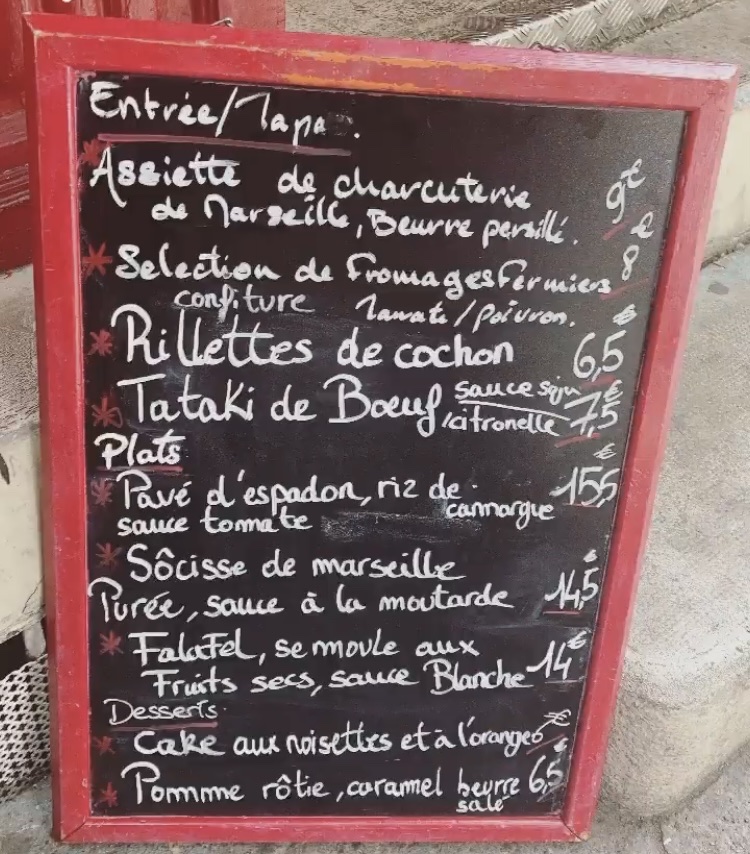 Entrée/Tapa.
Assiette de charcuterie 9€
de Marseille, Beurre persillé.
Selection de Fromages Fermiers 8€
confiture Tomate/Poivron.
Rillettes de cochon 6,5€
Tataki de Bœuf sauce soja
/citronelle 7,5€
Plats
Pavé d'espadon, riz de cammargue 15,5€
sauce tomate
Sôcisse de marseille
Purée, sauce à la moutarde 14,5€
Falafel, semoule aux
Fruits secs, sauce Blanche 14€
Desserts
Cake aux noisettes et à l'orange 6€
Pommme rôtie, caramel beurre 6,5€
salé